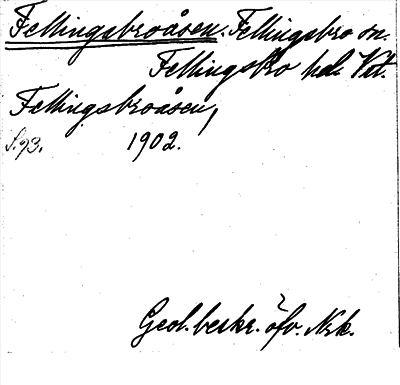 Fellingsbroåsen. Fellingsbro sn.
Fellingsbro hd. Vst.
Fellingsbroåsen,
S. 93. 1902.
Geol. beskr. öfv. Nrk.